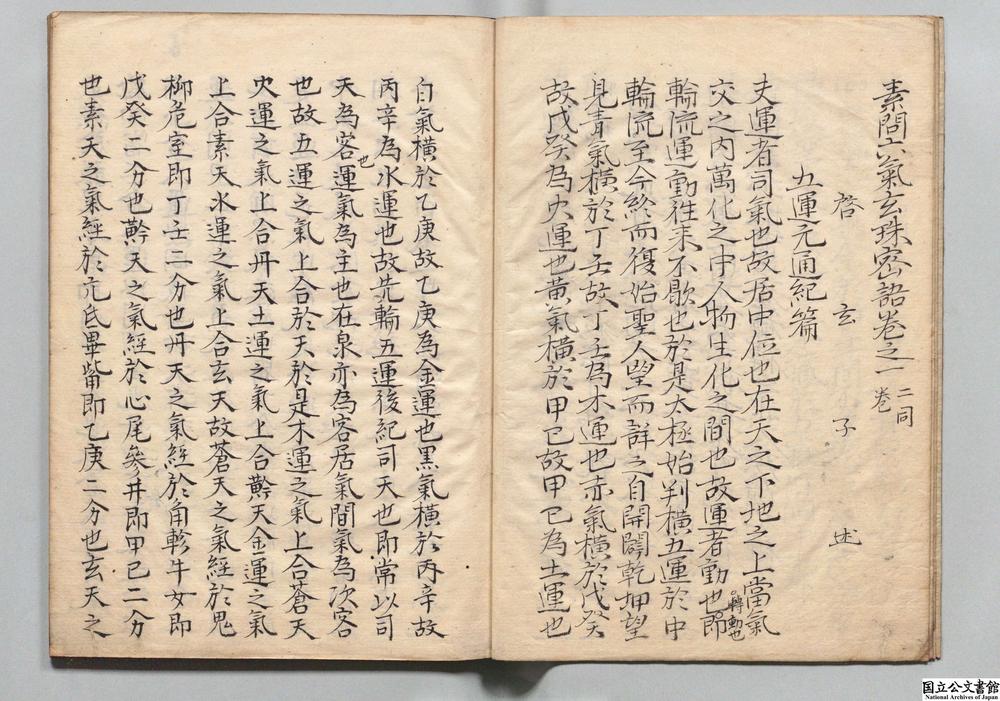 素問六氣玄珠密語卷之一 二同卷
啓玄子述
五運元通紀篇
夫運者司氣也故居中位也在天之下地之上當氣
交之内萬化之中人物生化之間也故運者動也即轉動也
輪流運動徃来不歇也於是太極始判横五運於中
輪流至今終而復始聖人望而詳之自開闢乾坤望
見青氣横於丁壬故丁壬為木運也赤氣横於戊癸
故戊癸為火運也黄氣横於甲己故甲己為土運也
白氣横於乙庚故乙庚為金運也黑氣横於丙辛故
丙辛為水運也故先輪五運後紀司天也即常以司
天為客運氣為主也在泉亦為客居氣間氣為次客
也
也故五運之氣上合於天於是木運之氣上合蒼天
火運之氣上合丹天土運之氣上合黅天金運之氣
上合素天水運之氣上合玄天故蒼天之氣經於鬼
柳危室即丁壬二分也丹天之氣經於角軫牛女即
戊癸二分也黅天之氣經於心尾參井即甲己二分
也素天之氣經於亢氐畢觜即乙庚二分也玄天之
国立公文書館
National Archives of Japan